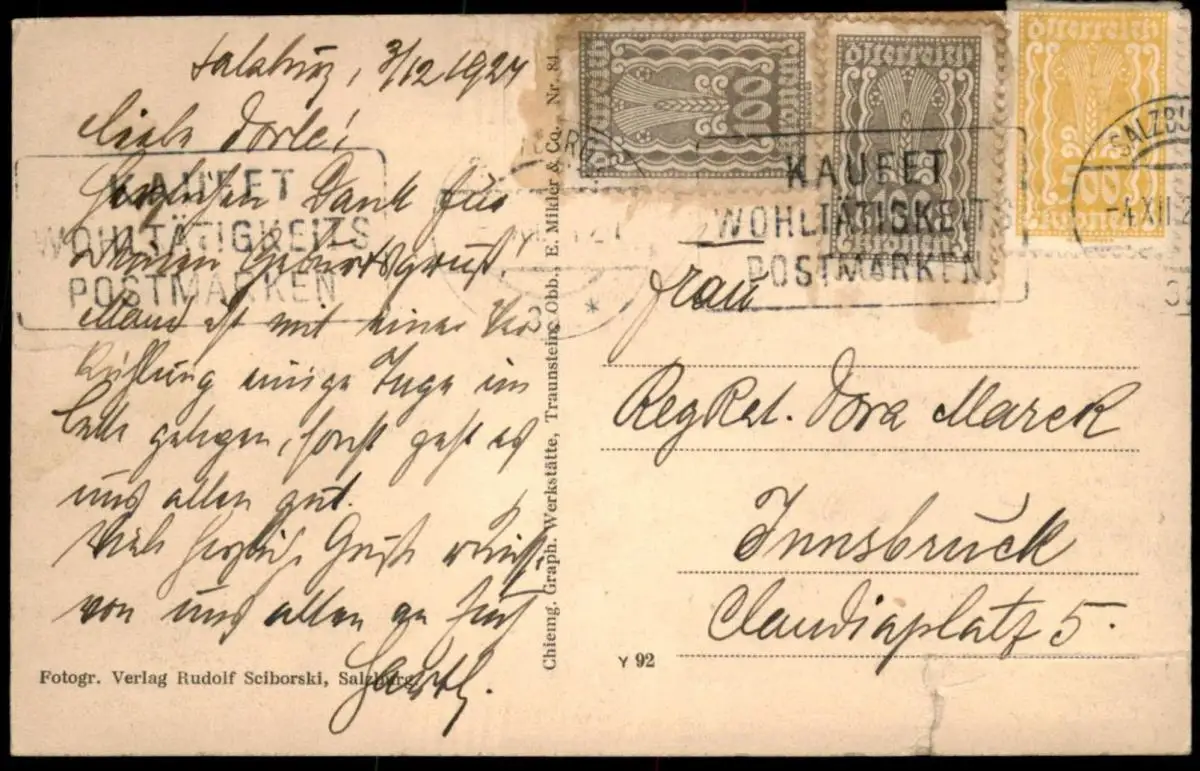 Salzburg, 3/12 1924
Liebe Dorle!
Herzlichen Dank für
Deinen Geburtsgruß.
ist mit einer Ver
kühlung einige Tage im
Bette gelegen, sonst geht es
uns allen gut.
Viele herzliche Grüße
von uns allen an Euch
Fotogr. Verlag Rudolf Sciborski, Salzburg
Chieming. Graph. Werkstätte, Traunstein, Obb., E. Mikler & Co. Nr. 84
Österreich
100
Kronen
Österreich
Kronen
Österreich
500
Kronen
KAUFET
WOHLTÄTIGKEITS
POSTMARKEN
KAUFET
WOHLTÄTIGKEITS
POSTMARKEN
SALZBU
-4.XII.2
Frau
RegRat. Dora Marek
Innsbruck
Claudiaplatz 5.
Y 92